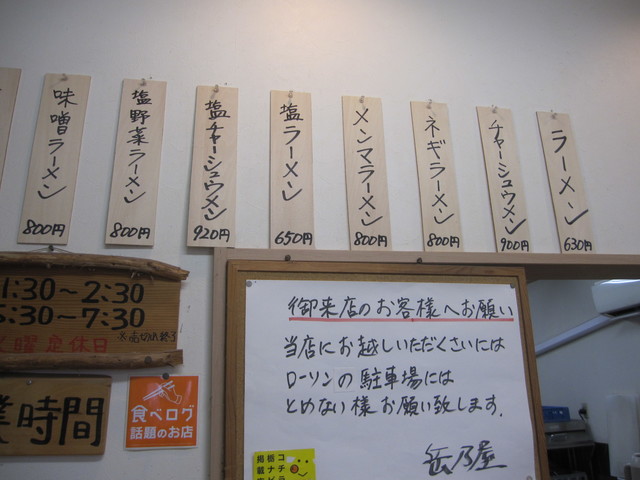 味噌ラーメン
800円
塩野菜ラーメン
800円
塩チャーシュウメン
920円
塩ラーメン
650円
メンマラーメン
800円
ネギラーメン
800円
チャーシュウメン
900円
ラーメン
630円
1:30〜2:30
5:30〜7:30
※売切れ終了
曜定休日
業時間
食べログ
話題のお店
御来店のお客様へお願い
当店にお越しいただくさいには
ローソンの駐車場には
とめない様お願い致します.
岳乃屋
掲栃コ
載ナチ